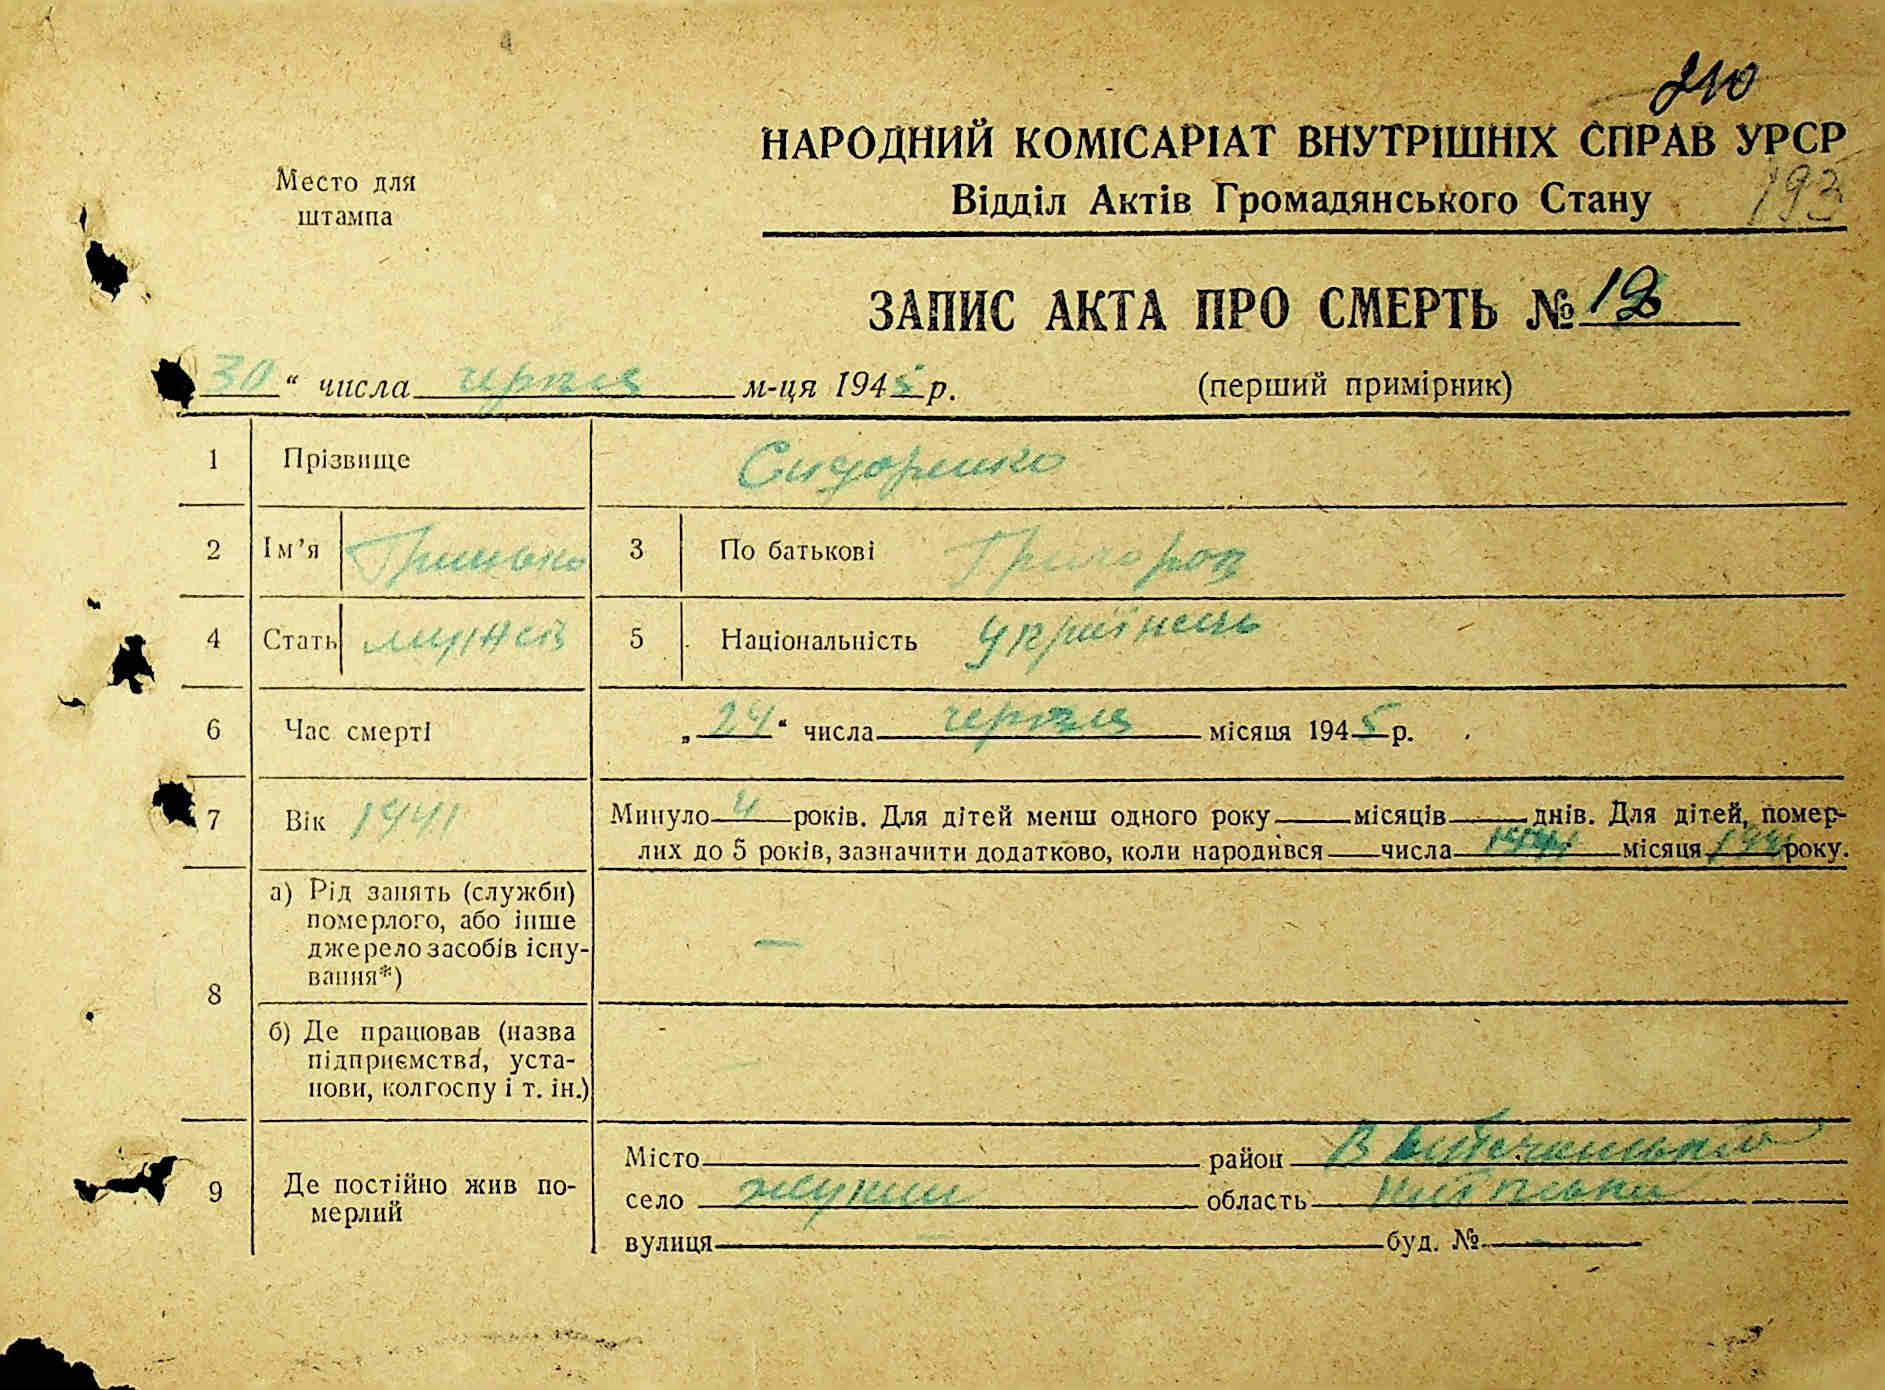 210
НАРОДНИЙ КОМІСАРІАТ ВНУТРІШНІХ СПРАВ УРСР
Место для штампа
Відділ Актів Громадянського Стану
193
ЗАПИС АКТА ПРО СМЕРТЬ №
30 “ числа червня м-ця 1945 р. (перший примірник)
1 Прізвище Сидоренко
2 Ім’я Гринько 3 По батькові Григоров
4 Стать 5 Національність Українець
6 Час смерті „ 24 “ числа червня місяця 1945 р.
7 Вік 1941 Минуло 4 років. Для дітей менш одного року місяців днів. Для дітей, помер-
лих до 5 років, зазначити додатково, коли народився числа 1941 місяця року.
8 а) Рід занять (служби)
померлого, або інше
джерело засобів існу-
вання*) —
б) Де працював (назва
підприємства, уста-
нови, колгоспу і т. ін.)
9 Де постійно жив по-
мерлий
Місто район
село область
вулиця буд. №